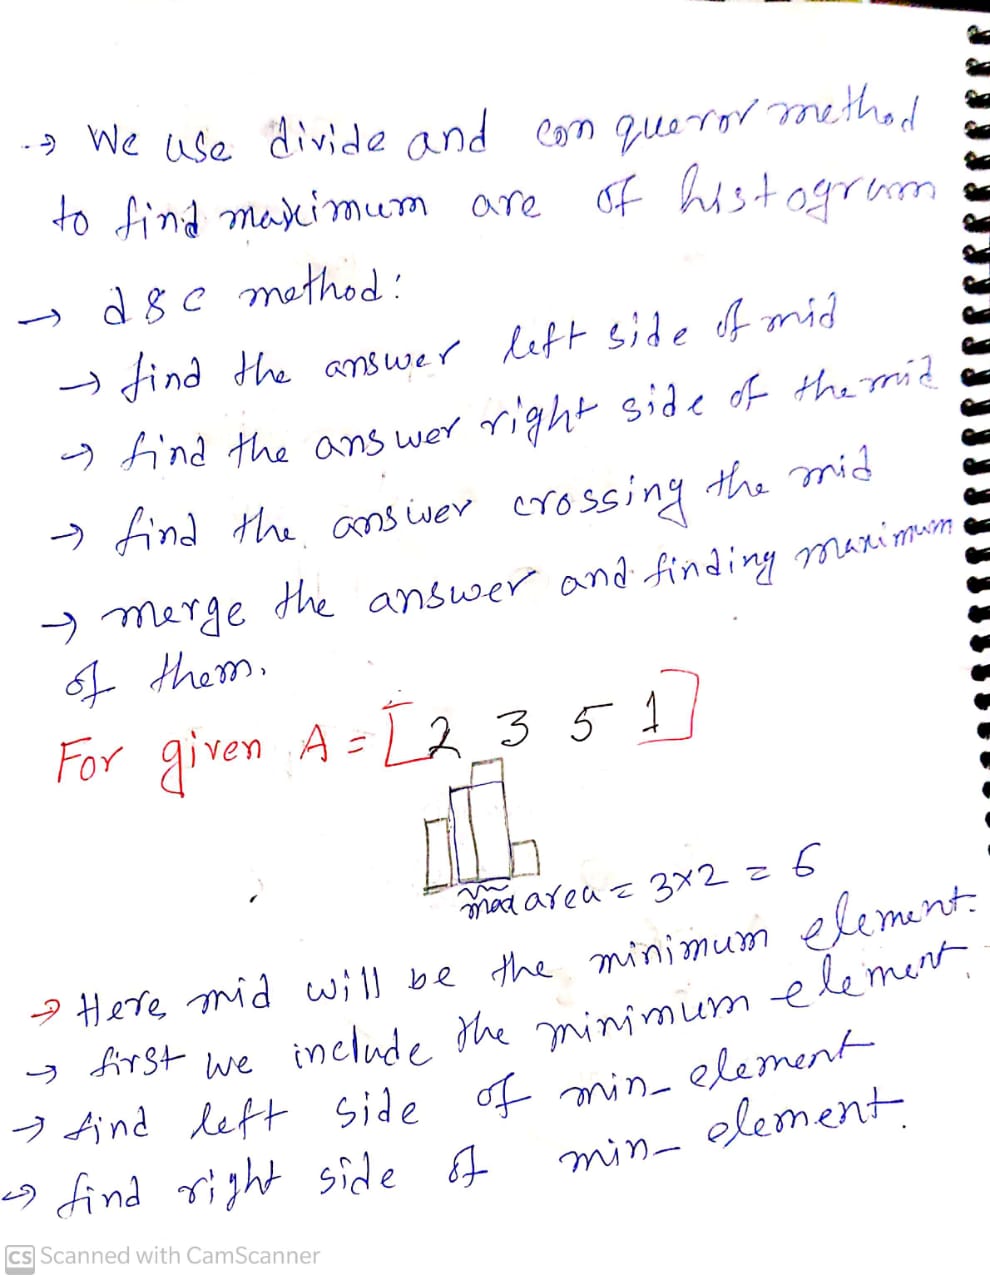 → We use divide and conqueror method
to find maximum are of histogram
→ d & c method:
→ find the answer left side of mid
→ find the answer right side of the mid
→ find the answer crossing the mid
→ merge the answer and finding maximum
of them.
For given A = [2 3 5 1]
max area = 3×2 = 6
→ Here mid will be the minimum element.
→ first we include the minimum element.
→ find left side of min- element
→ find right side of min- element.
CS Scanned with CamScanner